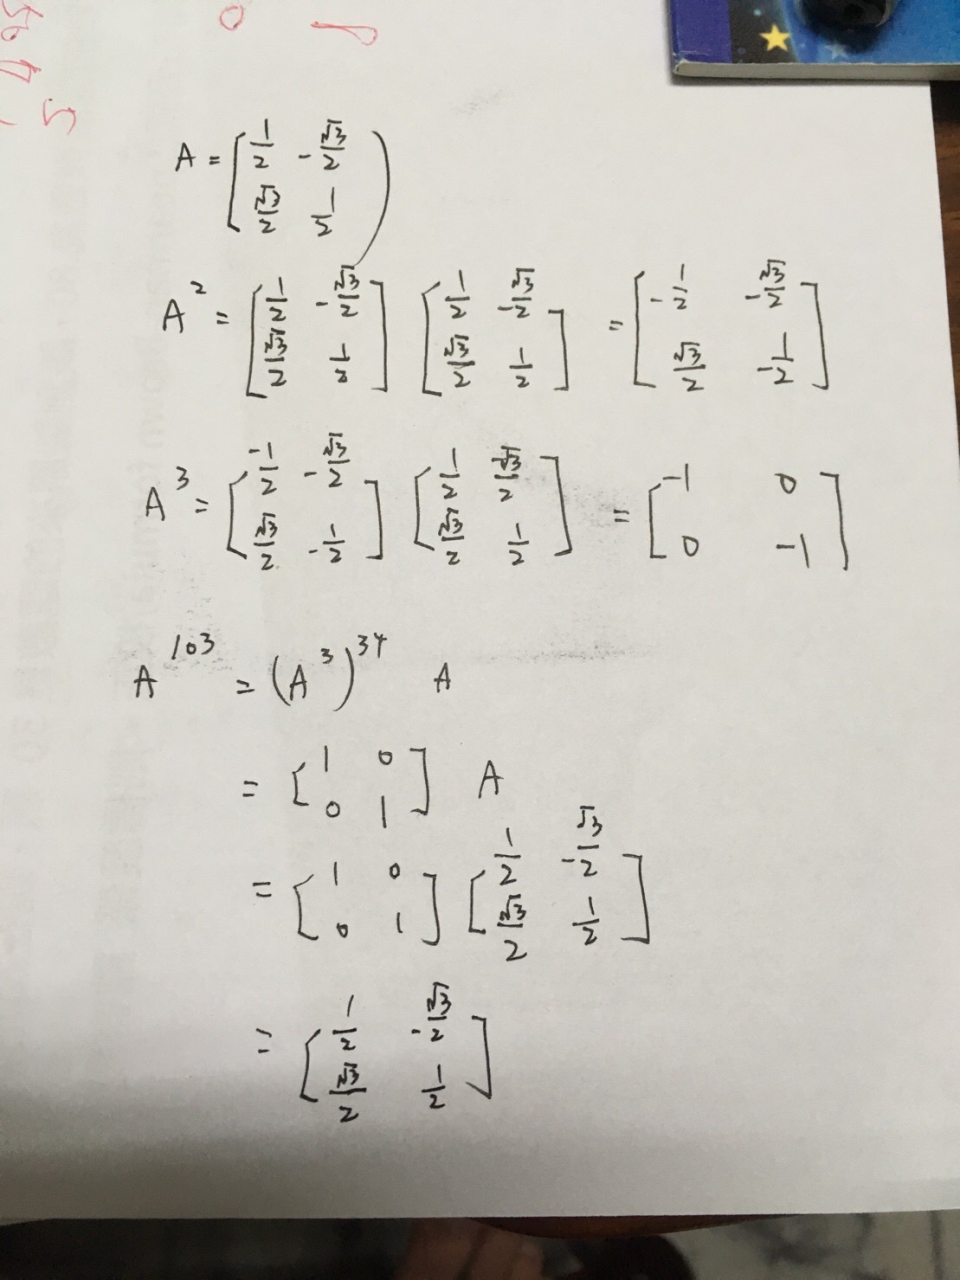 A = [1/2 -√3/2; √3/2 1/2)
A² = [1/2 -√3/2; √3/2 1/2] [1/2 -√3/2; √3/2 1/2] = [-1/2 -√3/2; √3/2 -1/2]
A³ = [-1/2 -√3/2; √3/2 -1/2] [1/2 -√3/2; √3/2 1/2] = [-1 0; 0 -1]
A¹⁰³ = (A³)³⁴ A
= [1 0; 0 1] A
= [1 0; 0 1] [1/2 -√3/2; √3/2 1/2]
= [1/2 -√3/2; √3/2 1/2]